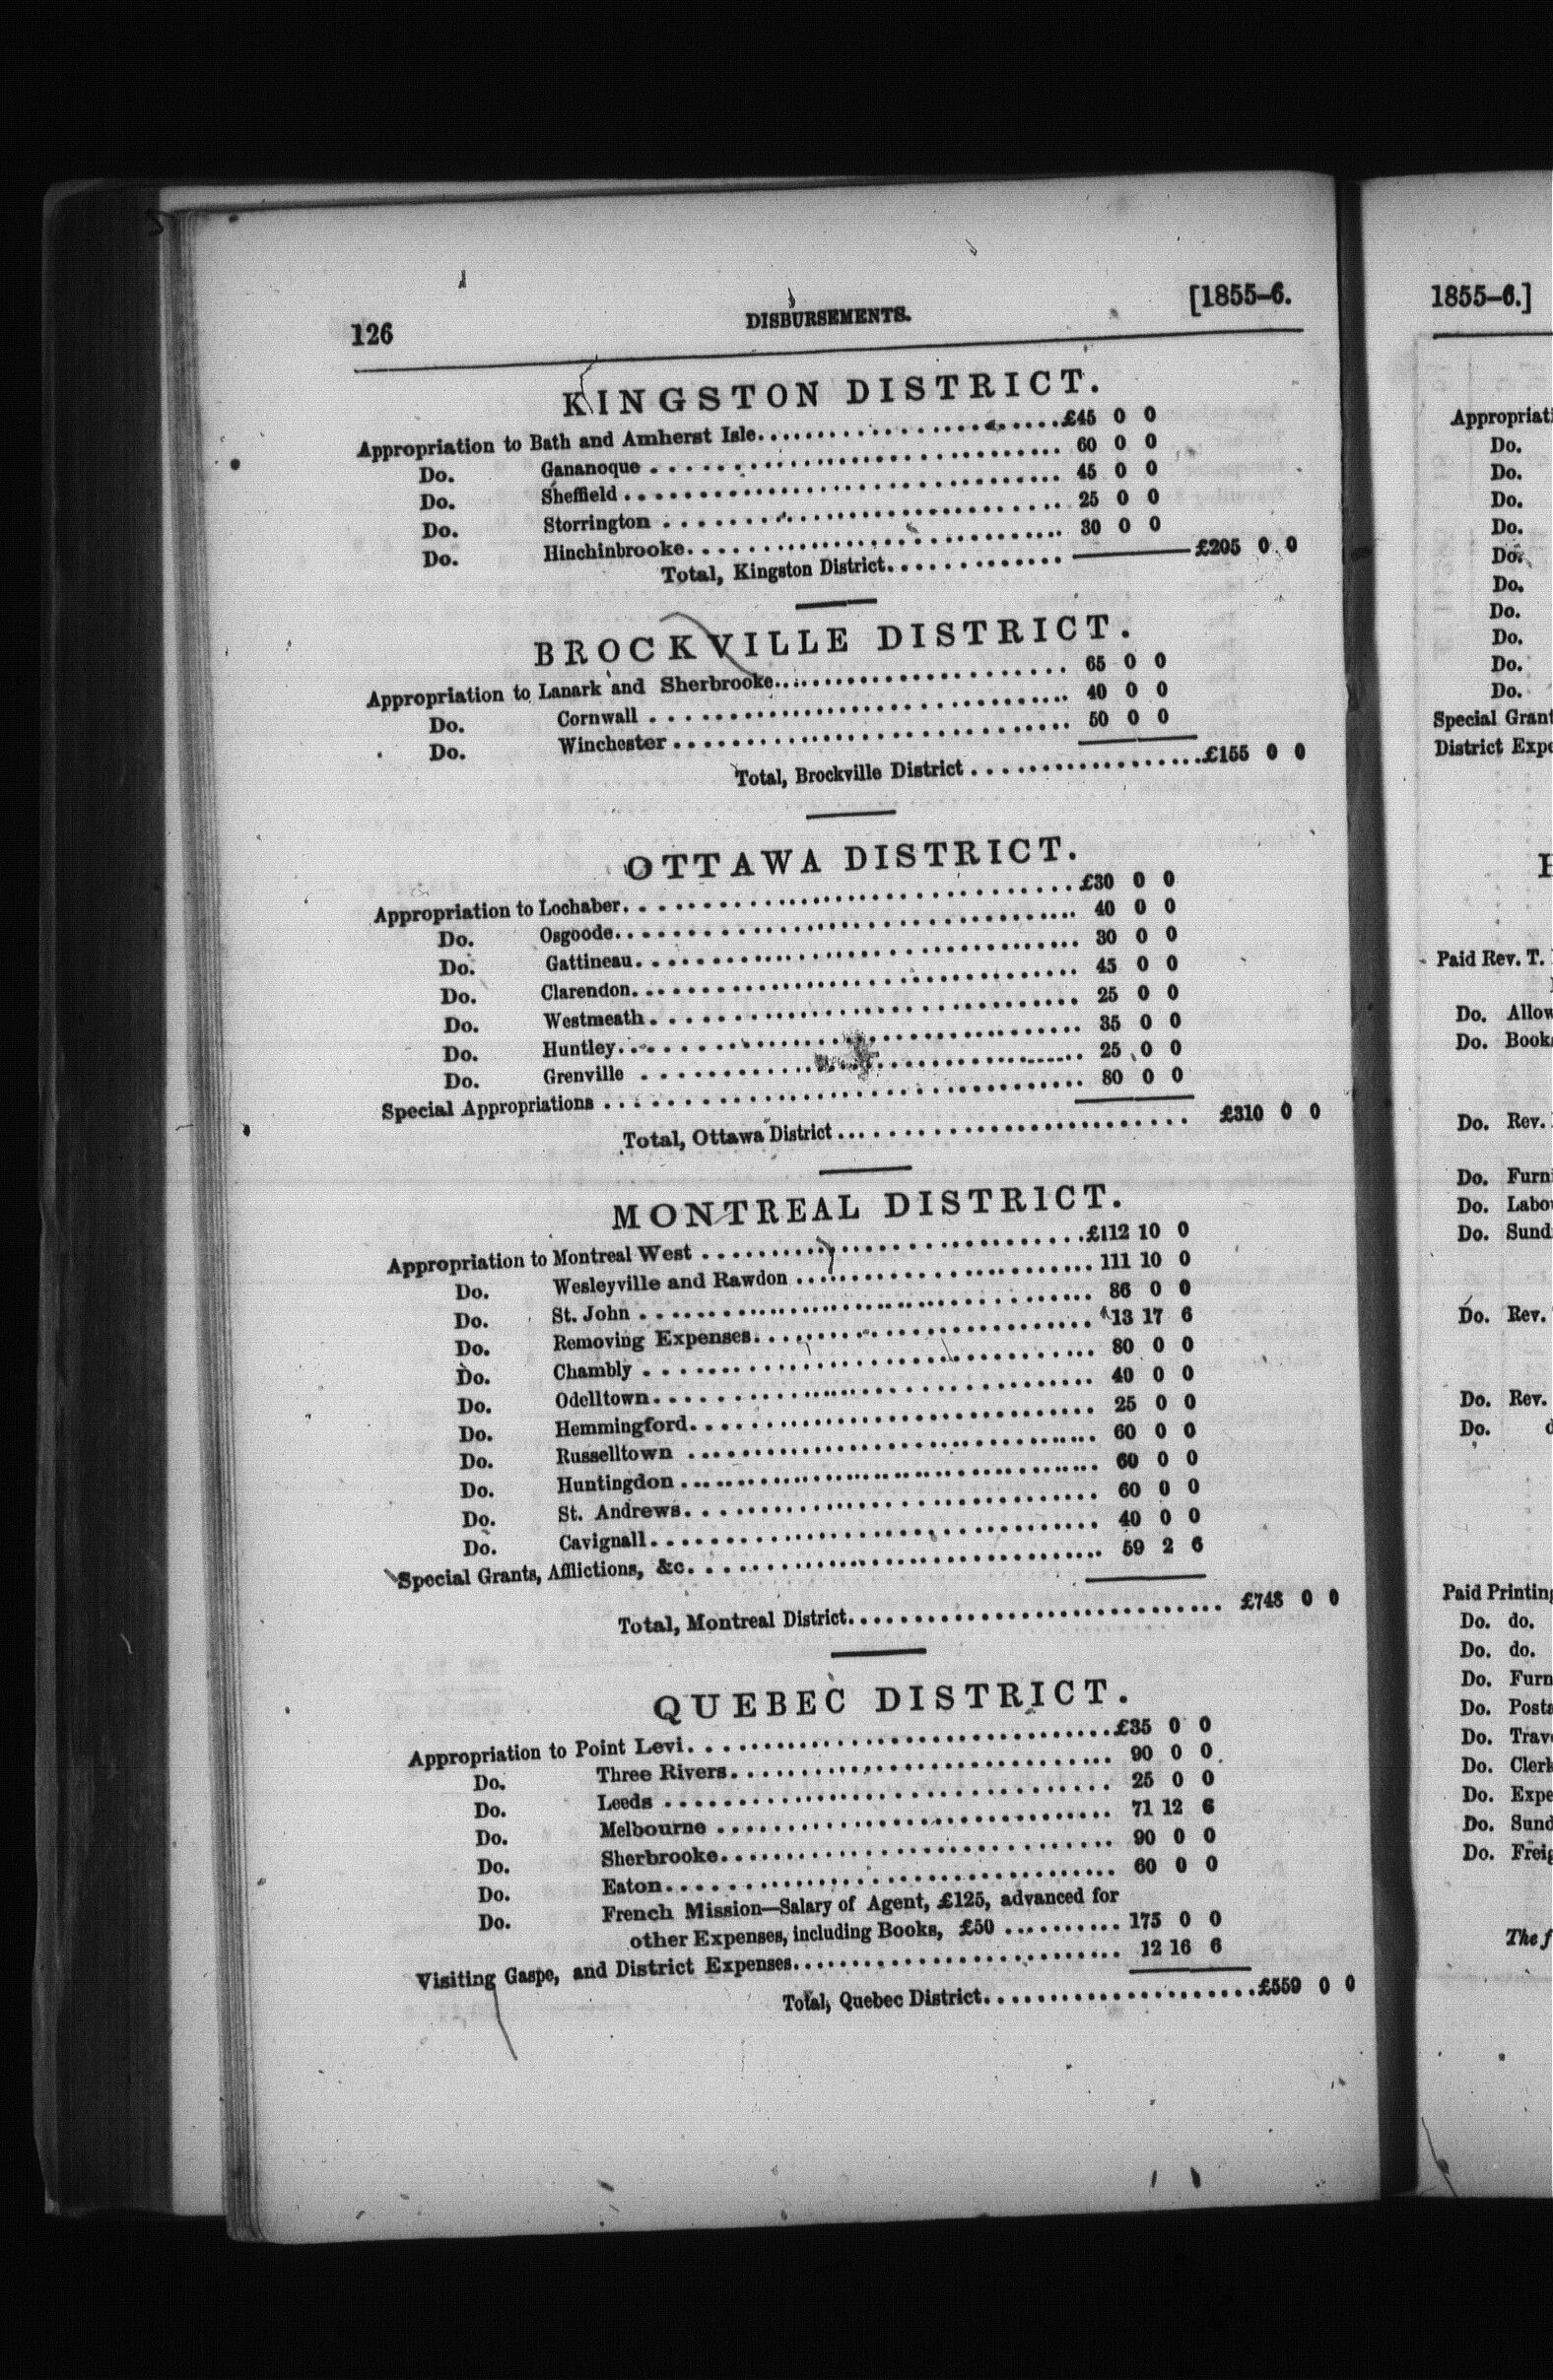 126 DISBURSEMENTS. [1855-6.
KINGSTON DISTRICT.
Appropriation to Bath and Amherst Isle. £45 0 0
Do. Gananoque 60 0 0
Do. Sheffield 45 0 0
Do. Storrington 25 0 0
Do. Hinchinbrooke. 30 0 0
Total, Kingston District. £205 0 0
BROCKVILLE DISTRICT.
Appropriation to Lanark and Sherbrooke. 65 0 0
Do. Cornwall 40 0 0
Do. Winchester 50 0 0
Total, Brockville District £155 0 0
OTTAWA DISTRICT.
Appropriation to Lochaber. £30 0 0
Do. Osgoode. 40 0 0
Do. Gattineau. 30 0 0
Do. Clarendon. 45 0 0
Do. Westmeath. 25 0 0
Do. Huntley. 35 0 0
Do. Grenville 25 0 0
Special Appropriations 80 0 0
Total, Ottawa District £310 0 0
MONTREAL DISTRICT.
Appropriation to Montreal West £112 10 0
Do. Wesleyville and Rawdon 111 10 0
Do. St. John 86 0 0
Do. Removing Expenses. 13 17 6
Do. Chambly 80 0 0
Do. Odelltown. 40 0 0
Do. Hemmingford. 25 0 0
Do. Russelltown 60 0 0
Do. Huntingdon 60 0 0
Do. St. Andrews. 60 0 0
Do. Cavignall. 40 0 0
Special Grants, Afflictions, &c. 59 2 6
Total, Montreal District. £748 0 0
QUEBEC DISTRICT.
Appropriation to Point Levi. £35 0 0
Do. Three Rivers. 90 0 0
Do. Leeds 25 0 0
Do. Melbourne 71 12 6
Do. Sherbrooke. 90 0 0
Do. Eaton. 60 0 0
Do. French Mission—Salary of Agent, £125, advanced for
other Expenses, including Books, £50 175 0 0
Visiting Gaspe, and District Expenses. 12 16 6
Total, Quebec District. £559 0 0
1855-6.]
Do.
Do.
Do.
Do.
Do.
Do.
Do.
Do.
Do.
Do.
District
Paid Rev. T.
Do.
Do.
Do. Rev.
Do.
Do.
Do.
Do. Rev.
Do. Rev.
Do.
Paid
Do. do.
Do. do.
Do.
Do.
Do.
Do.
Do.
Do.
Do.
The